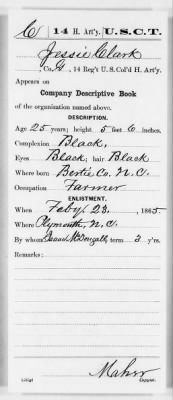 C | 14 H. Art'y. | U.S.C.T.
Jessie Clark
, Co. G, 14 Reg't U.S. Col'd H. Art'y.
Appears on
Company Descriptive Book
of the organization named above.
DESCRIPTION.
Age 25 years; height 5 feet 6 inches.
Complexion Black,
Eyes Black; hair Black
Where born Bertie Co. N.C.
Occupation Farmer
ENLISTMENT.
When Feby. 23, 1865
Where Plymouth, N.C.
By whom Isaac McDougall; term 3 y'rs.
Remarks:
Maher
Copyist.